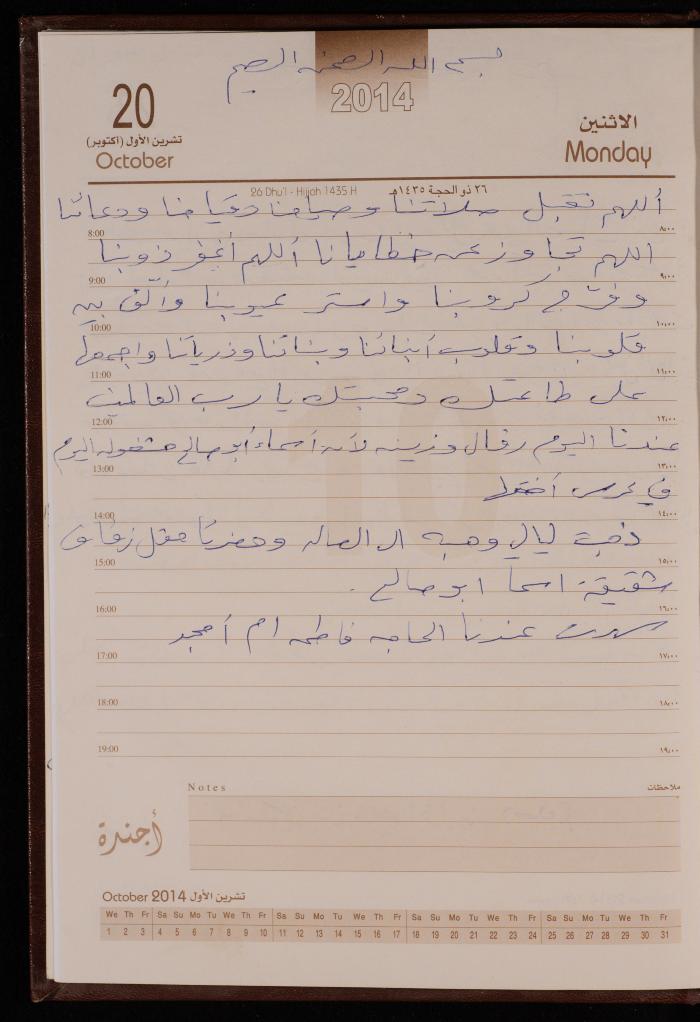 بسم الله الرحمن الرحيم
2014
20
تشرين الأول (أكتوبر)
October
الاثنين
Monday
26 Dhu'l - Hijjah 1435 H
٢٦ ذو الحجة ١٤٣٥هـ
أللهم تقبل صلاتنا وصيامنا وقيامنا ودعائنا
8:00 ٨،٠٠
اللهم تجاوز عن خطايانا أللهم أغفر ذوبنا
9:00 ٩،٠٠
وفرّج كروبنا واستر عيوبنا وألّف بين
10:00 ١٠،٠٠
قلوبنا وقلوب أبنائنا وبناتنا وذرياتنا واجمعها
11:00 ١١،٠٠
على طاعتك ومحبتك يا رب العالمين
12:00 ١٢،٠٠
عندنا اليوم رفال وزينه لأن أسماء أبو صالح مشغوله اليوم
13:00 ١٣،٠٠
في عرس أختها
14:00 ١٤،٠٠
ذهبت ليالي وهبه الى الصاله وحضرتا حفل زفاف
15:00 ١٥،٠٠
شقيقة اسما ابو صالح .
16:00 ١٦،٠٠
سهرت عندنا الحاجه فاطمه ام أمجد
17:00 ١٧،٠٠
18:00 ١٨،٠٠
19:00 ١٩،٠٠
Notes ملاحظات
أجندة
October 2014 تشرين الأول
We Th Fr Sa Su Mo Tu We Th Fr Sa Su Mo Tu We Th Fr Sa Su Mo Tu We Th Fr Sa Su Mo Tu We Th Fr
1 2 3 4 5 6 7 8 9 10 11 12 13 14 15 16 17 18 19 20 21 22 23 24 25 26 27 28 29 30 31